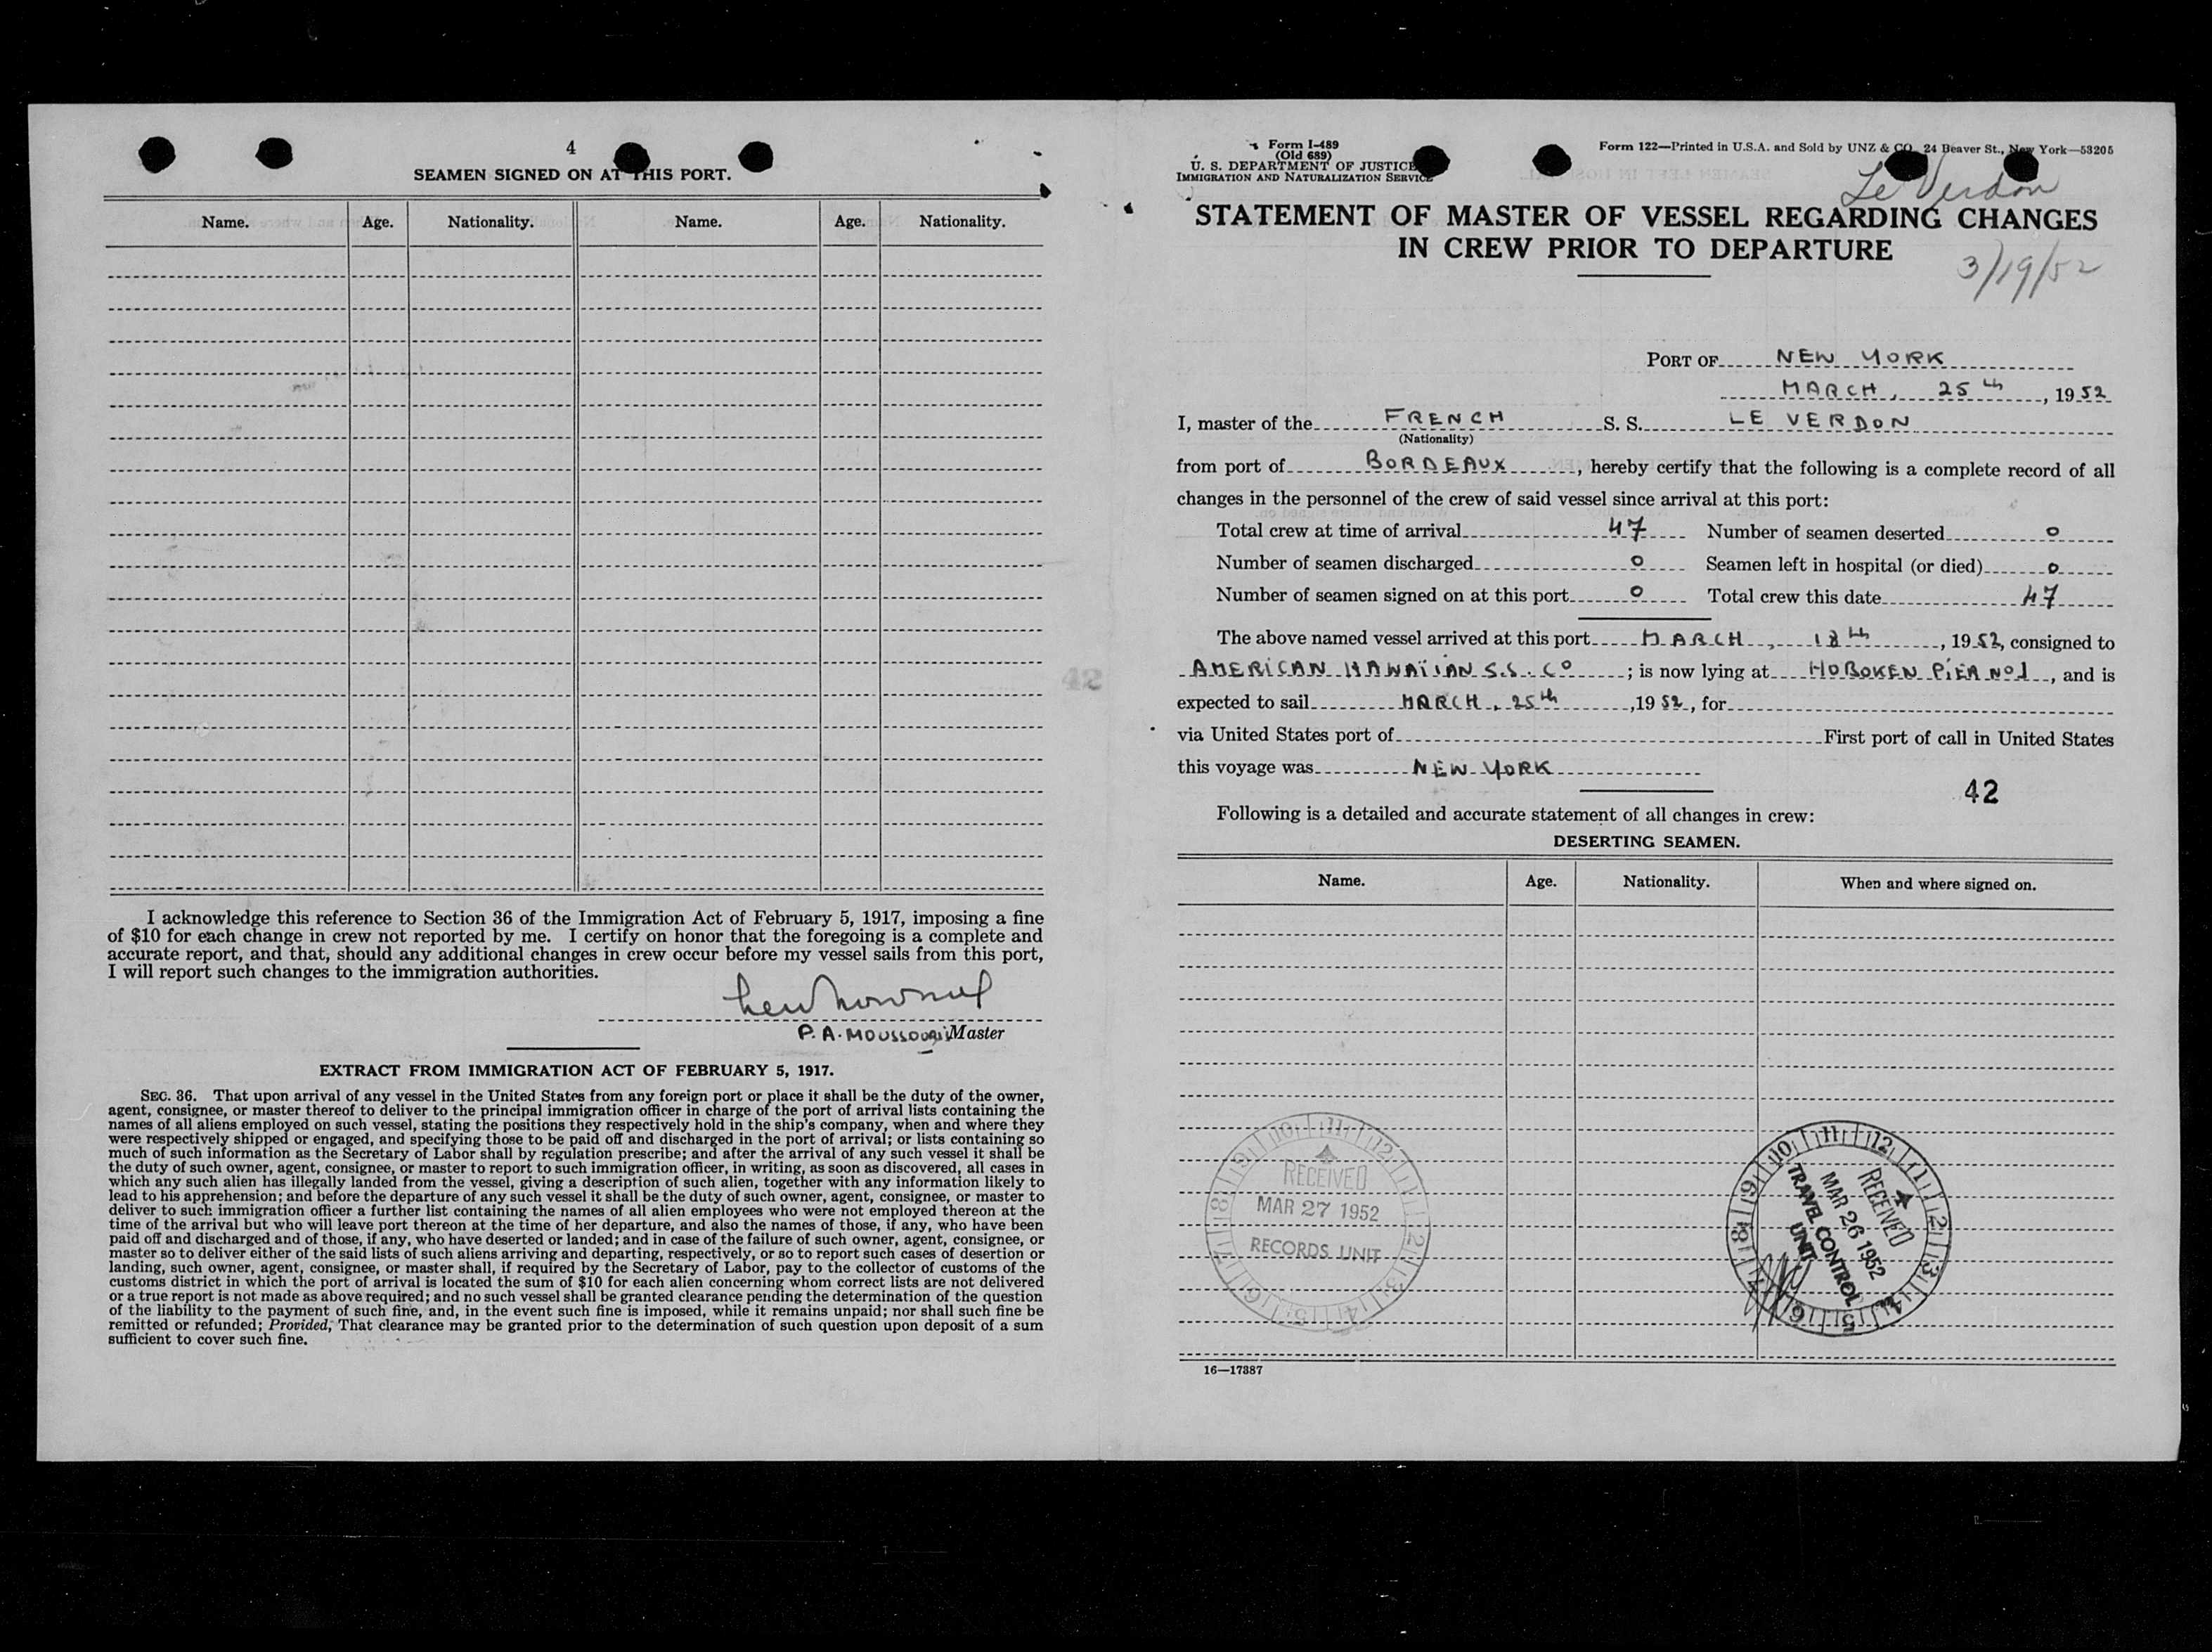 4
SEAMEN SIGNED ON AT THIS PORT.
Name. Age. Nationality. Name. Age. Nationality.
I acknowledge this reference to Section 36 of the Immigration Act of February 5, 1917, imposing a fine
of $10 for each change in crew not reported by me. I certify on honor that the foregoing is a complete and
accurate report, and that, should any additional changes in crew occur before my vessel sails from this port,
I will report such changes to the immigration authorities.
P. A. MOUSSOURIS Master
EXTRACT FROM IMMIGRATION ACT OF FEBRUARY 5, 1917.
SEC. 36. That upon arrival of any vessel in the United States from any foreign port or place it shall be the duty of the owner,
agent, consignee, or master thereof to deliver to the principal immigration officer in charge of the port of arrival lists containing the
names of all aliens employed on such vessel, stating the positions they respectively hold in the ship's company, when and where they
were respectively shipped or engaged, and specifying those to be paid off and discharged in the port of arrival; or lists containing so
much of such information as the Secretary of Labor shall by regulation prescribe; and after the arrival of any such vessel it shall be
the duty of such owner, agent, consignee, or master to report to such immigration officer, in writing, as soon as discovered, all cases in
which any such alien has illegally landed from the vessel, giving a description of such alien, together with any information likely to
lead to his apprehension; and before the departure of any such vessel it shall be the duty of such owner, agent, consignee, or master to
deliver to such immigration officer a further list containing the names of all alien employees who were not employed thereon at the
time of the arrival but who will leave port thereon at the time of her departure, and also the names of those, if any, who have been
paid off and discharged and of those, if any, who have deserted or landed; and in case of the failure of such owner, agent, consignee, or
master so to deliver either of the said lists of such aliens arriving and departing, respectively, or so to report such cases of desertion or
landing, such owner, agent, consignee, or master shall, if required by the Secretary of Labor, pay to the collector of customs of the
customs district in which the port of arrival is located the sum of $10 for each alien concerning whom correct lists are not delivered
or a true report is not made as above required; and no such vessel shall be granted clearance pending the determination of the question
of the liability to the payment of such fine, and, in the event such fine is imposed, while it remains unpaid; nor shall such fine be
remitted or refunded; Provided, That clearance may be granted prior to the determination of such question upon deposit of a sum
sufficient to cover such fine.
Form I-489
(Old 689)
U. S. DEPARTMENT OF JUSTICE
IMMIGRATION AND NATURALIZATION SERVICE
Form 122—Printed in U.S.A. and Sold by UNZ & CO. 24 Beaver St., New York—53205
Le Verdon
STATEMENT OF MASTER OF VESSEL REGARDING CHANGES
IN CREW PRIOR TO DEPARTURE
3/19/52
PORT OF NEW YORK
MARCH, 25th, 1952
I, master of the FRENCH S. S. LE VERDON
(Nationality)
from port of BORDEAUX, hereby certify that the following is a complete record of all
changes in the personnel of the crew of said vessel since arrival at this port:
Total crew at time of arrival 47 Number of seamen deserted 0
Number of seamen discharged 0 Seamen left in hospital (or died) 0
Number of seamen signed on at this port 0 Total crew this date 47
The above named vessel arrived at this port MARCH, 18th, 1952, consigned to
AMERICAN HAWAÏIAN S.S. Co; is now lying at HOBOKEN PIER No1, and is
expected to sail MARCH, 25th, 1952, for
via United States port of First port of call in United States
this voyage was NEW YORK
42
Following is a detailed and accurate statement of all changes in crew:
DESERTING SEAMEN.
Name. Age. Nationality. When and where signed on.
RECEIVED
MAR 27 1952
RECORDS UNIT
RECEIVED
MAR 26 1952
TRAVEL CONTROL
UNIT
16—17387